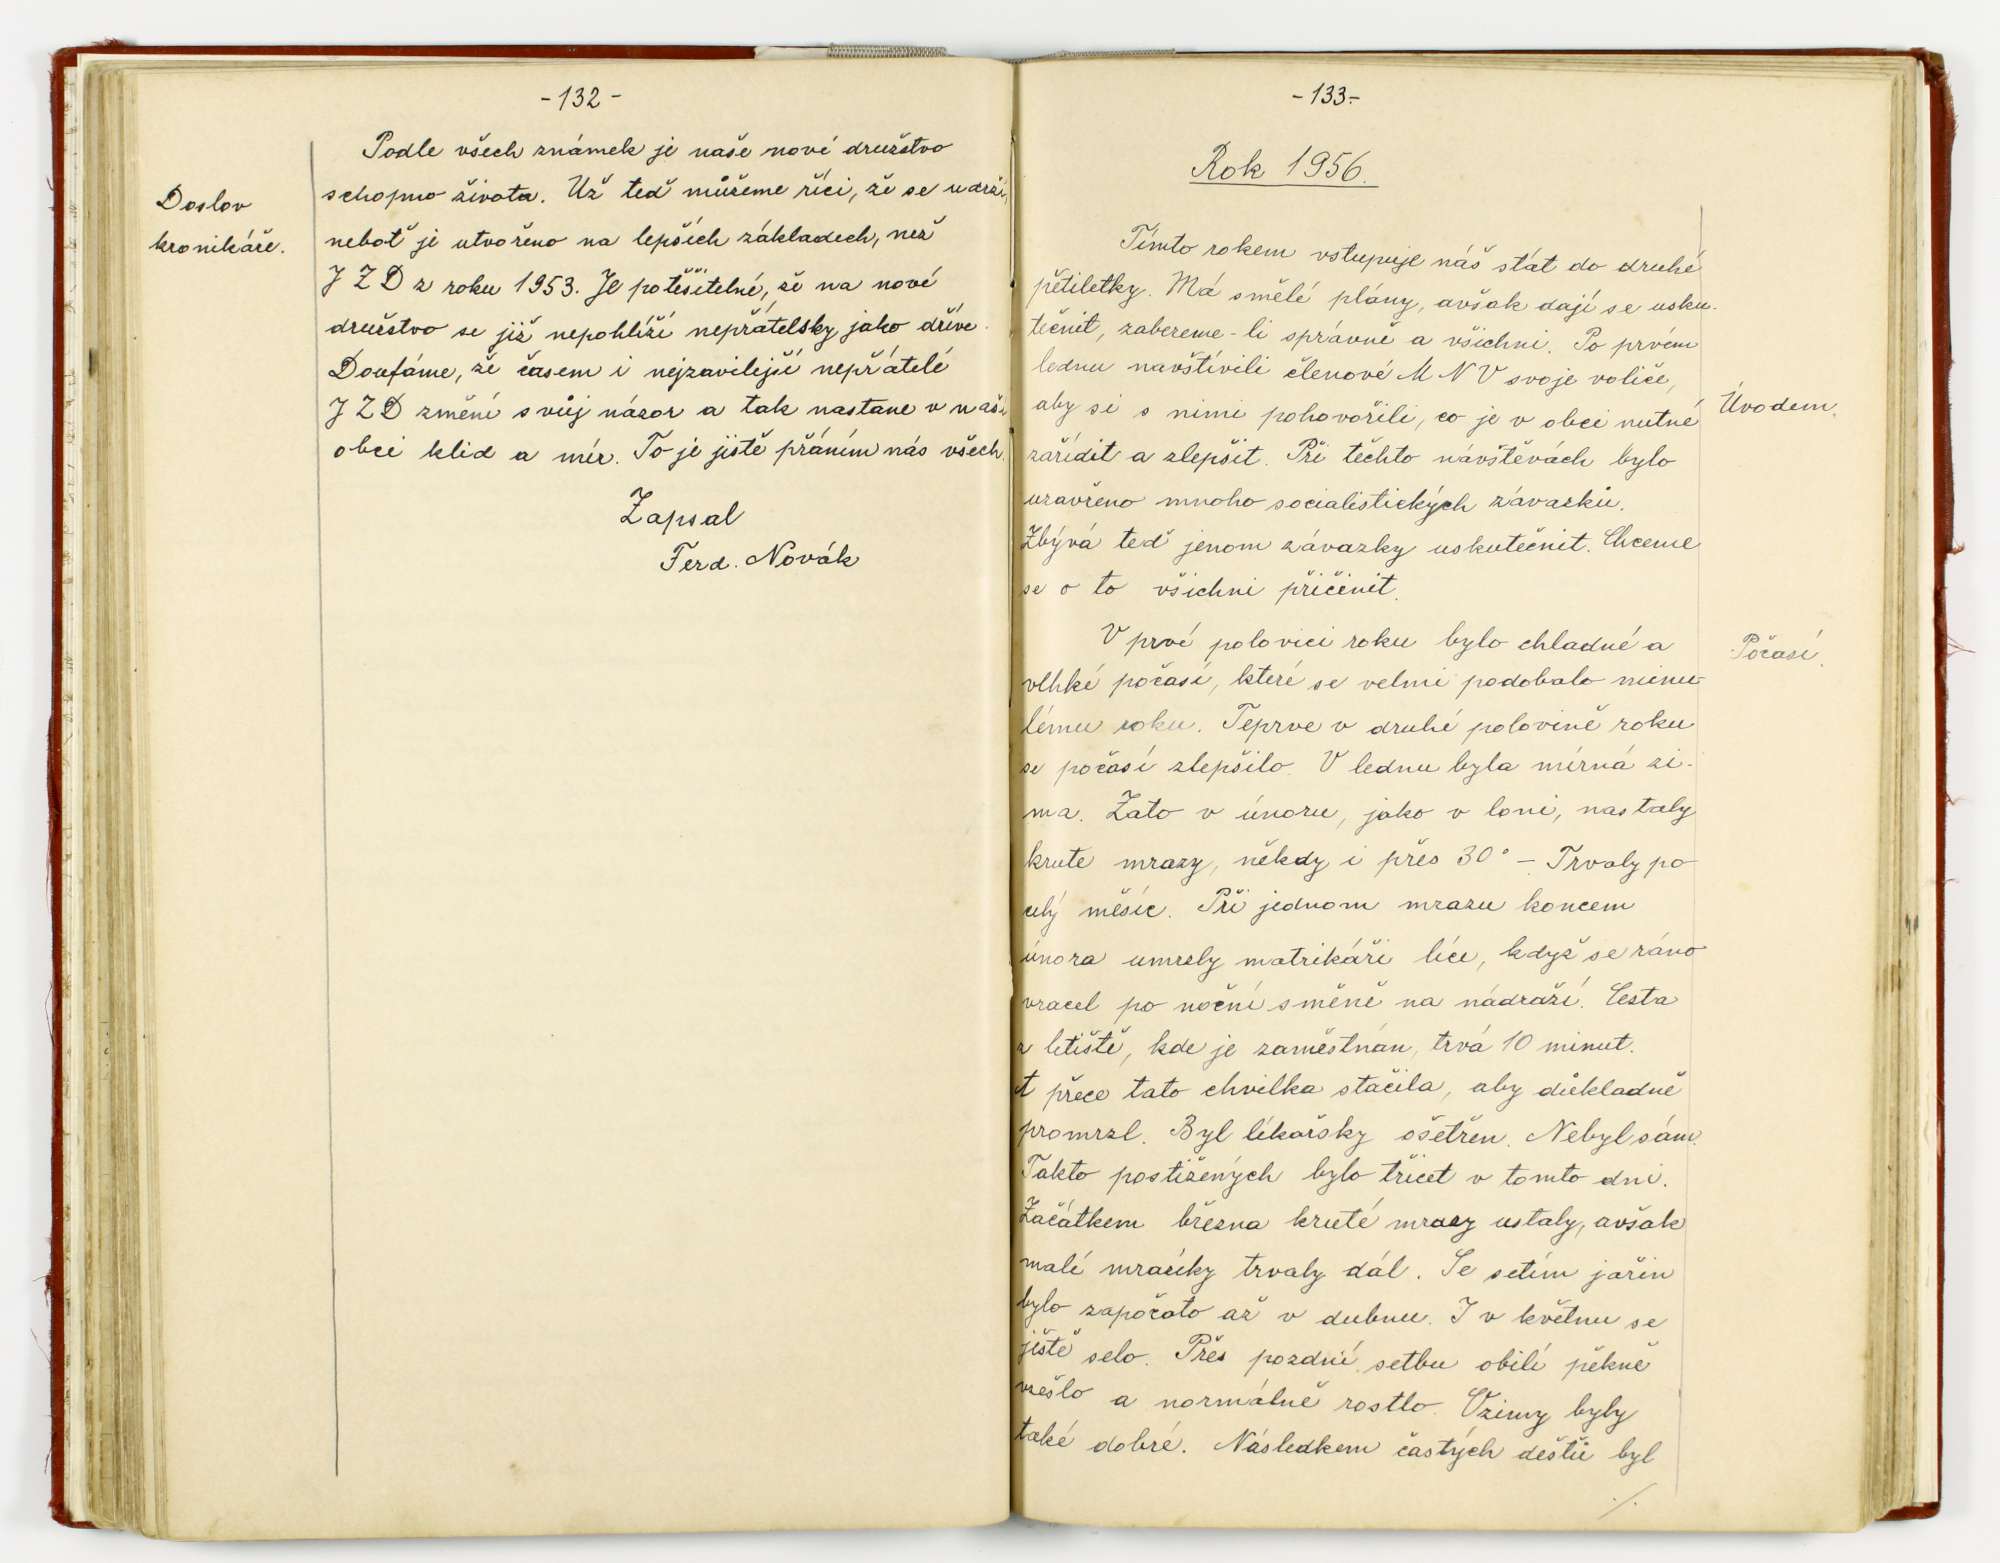 -132-
Podle všech známek je naše nové družstvo
schopno života. Už teď můžeme říci, že se udrží,
Doslov
kronikáře.
neboť je utvořeno na lepších základech, než
JZD z roku 1953. Je potěšitelné, že na nové
družstvo se již nepohlíží nepřátelsky jako dříve.
Doufáme, že časem i nejzavilejší nepřátelé
JZD změní svůj názor a tak nastane v naší
obci klid a mír. To je jistě přáním nás všech.
Zapsal
Ferd. Novák
-133-
Rok 1956.
Tímto rokem vstupuje náš stát do druhé
pětiletky. Má smělé plány, avšak dají se usku-
tečnit, zabereme-li správně a všichni. Po prvém
lednu navštívili členové MNV svoje voliče,
aby si s nimi pohovořili, co je v obci nutné
Úvodem.
zařídit a zlepšit. Při těchto návštěvách bylo
uzavřeno mnoho socialistických závazků.
Zbývá teď jenom závazky uskutečnit. Chceme
se o to všichni přičinit.
V prvé polovici roku bylo chladné a
Počasí.
vlhké počasí, které se velmi podobalo minu-
lému roku. Teprve v druhé polovině roku
se počasí zlepšilo. V lednu byla mírná zi-
ma. Zato v únoru, jako v loni, nastaly
kruté mrazy, někdy i přes 30° - Trvaly po
celý měsíc. Při jednom mrazu koncem
února umrzly matrikáři líce, když se ráno
vracel po noční směně na nádraží. Cesta
z letiště, kde je zaměstnán, trvá 10 minut.
A přece tato chvilka stačila, aby důkladně
promrzl. Byl lékařsky ošetřen. Nebyl sám.
Takto postižených bylo třicet v tomto dni.
Začátkem března kruté mrazy ustaly, avšak
malé mrazíky trvaly dál. Se setím jařin
bylo započato až v dubnu. I v květnu se
ještě selo. Přes pozdní setbu obilí pěkně
vzešlo a normálně rostlo. Ozimy byly
také dobré. Následkem častých dešťů byl
./.